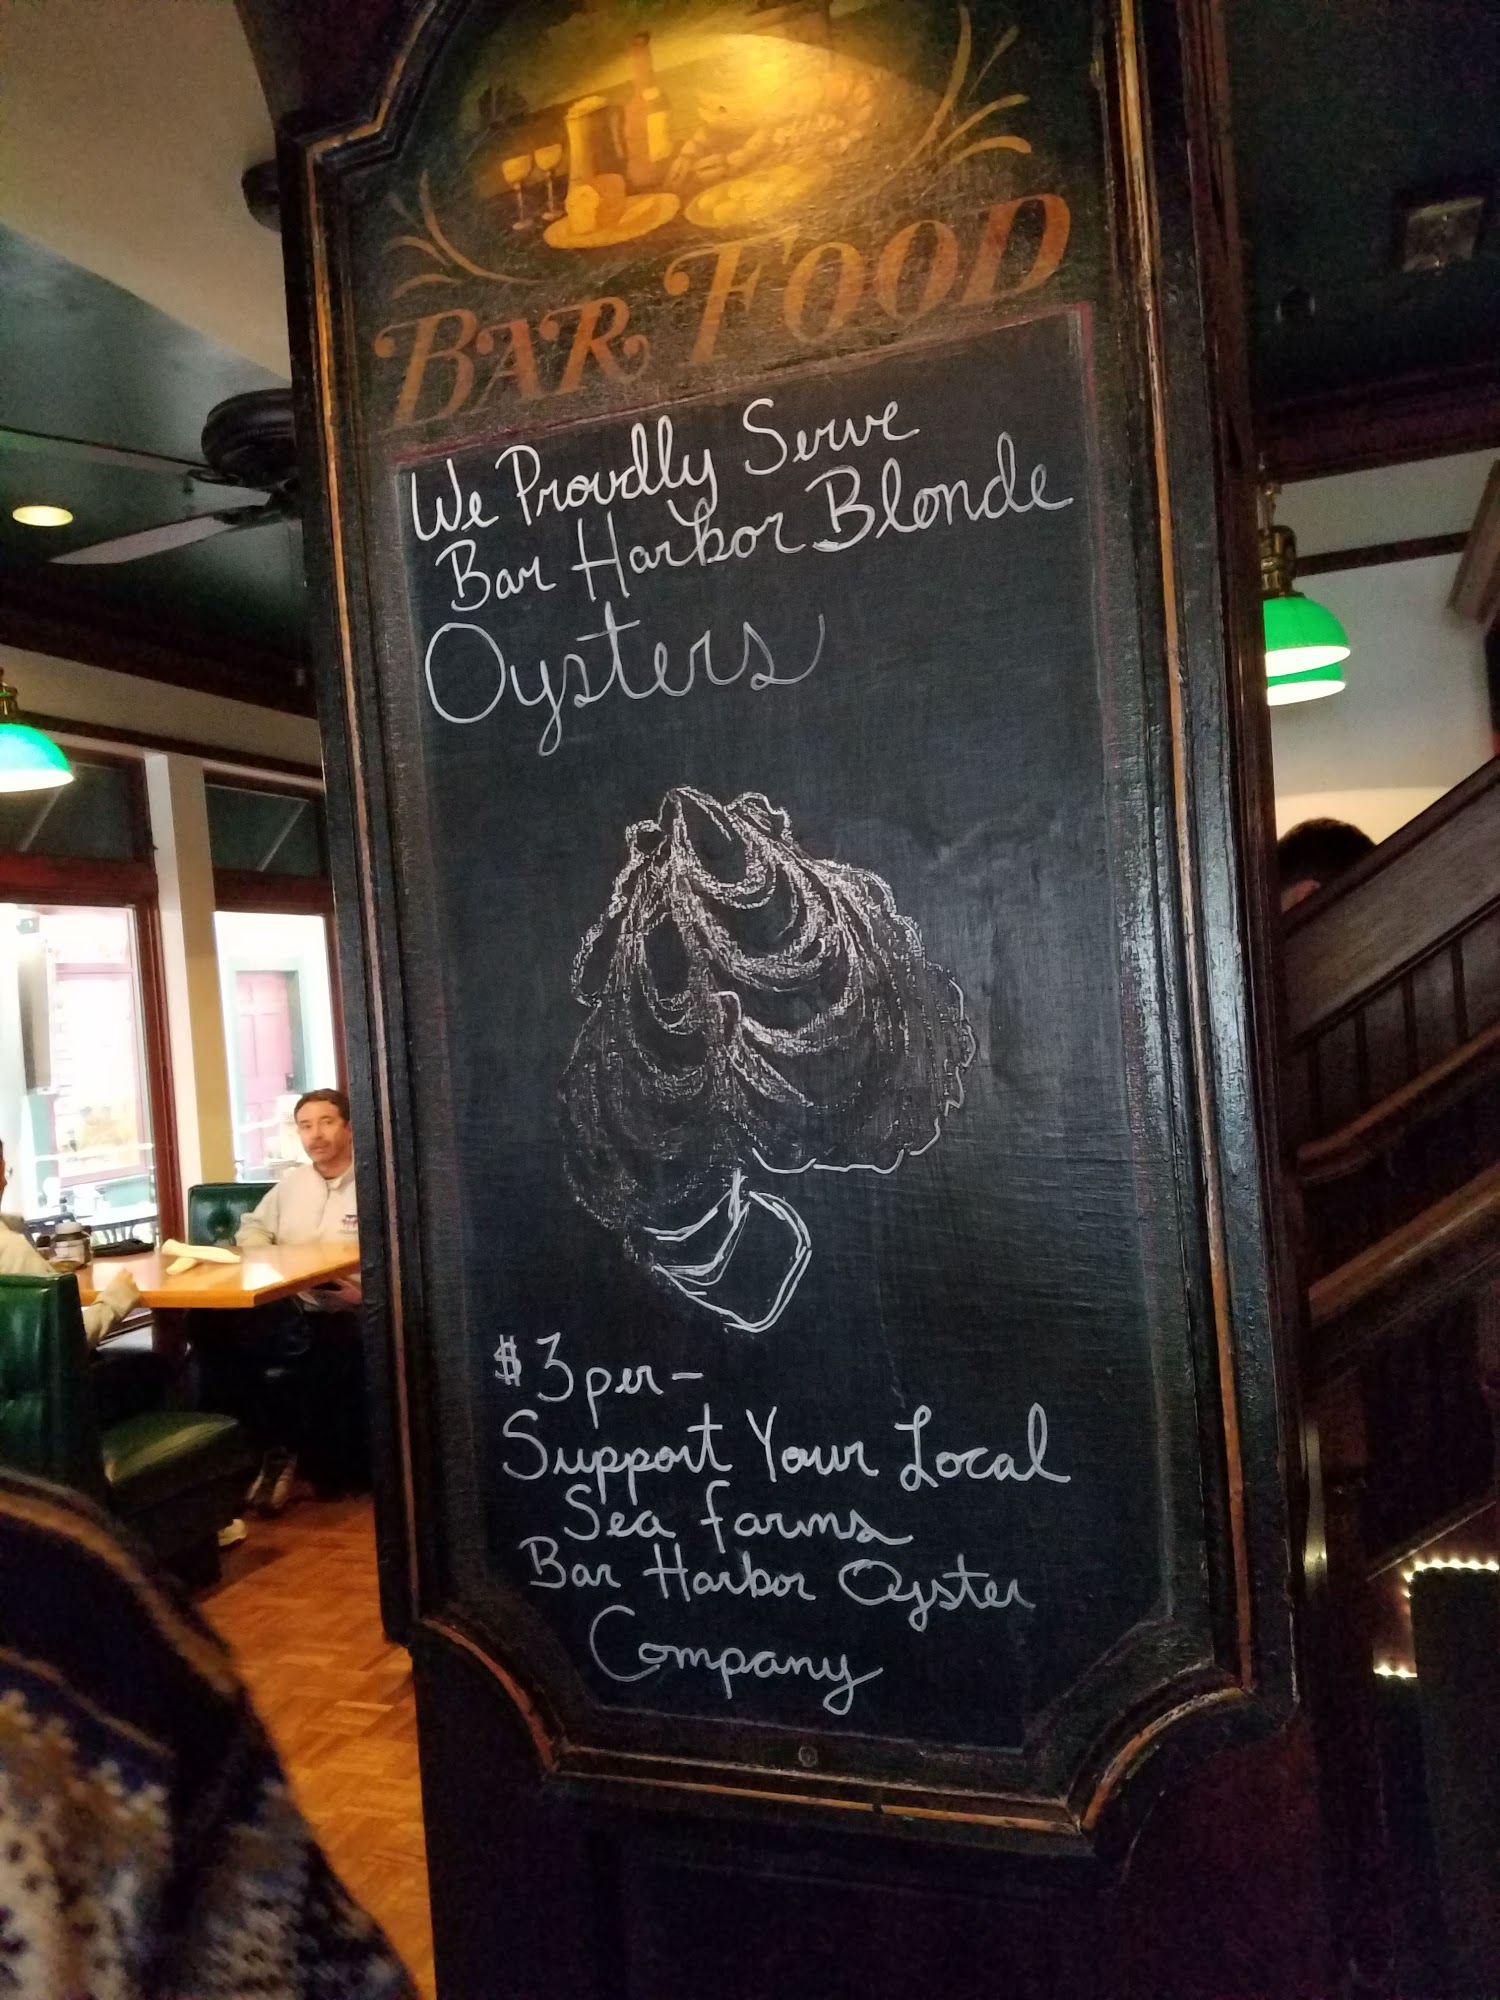 BAR FOOD
We Proudly Serve
Bar Harbor Blonde
Oysters
$3 per-
Support Your Local
Sea farms
Bar Harbor Oyster
Company